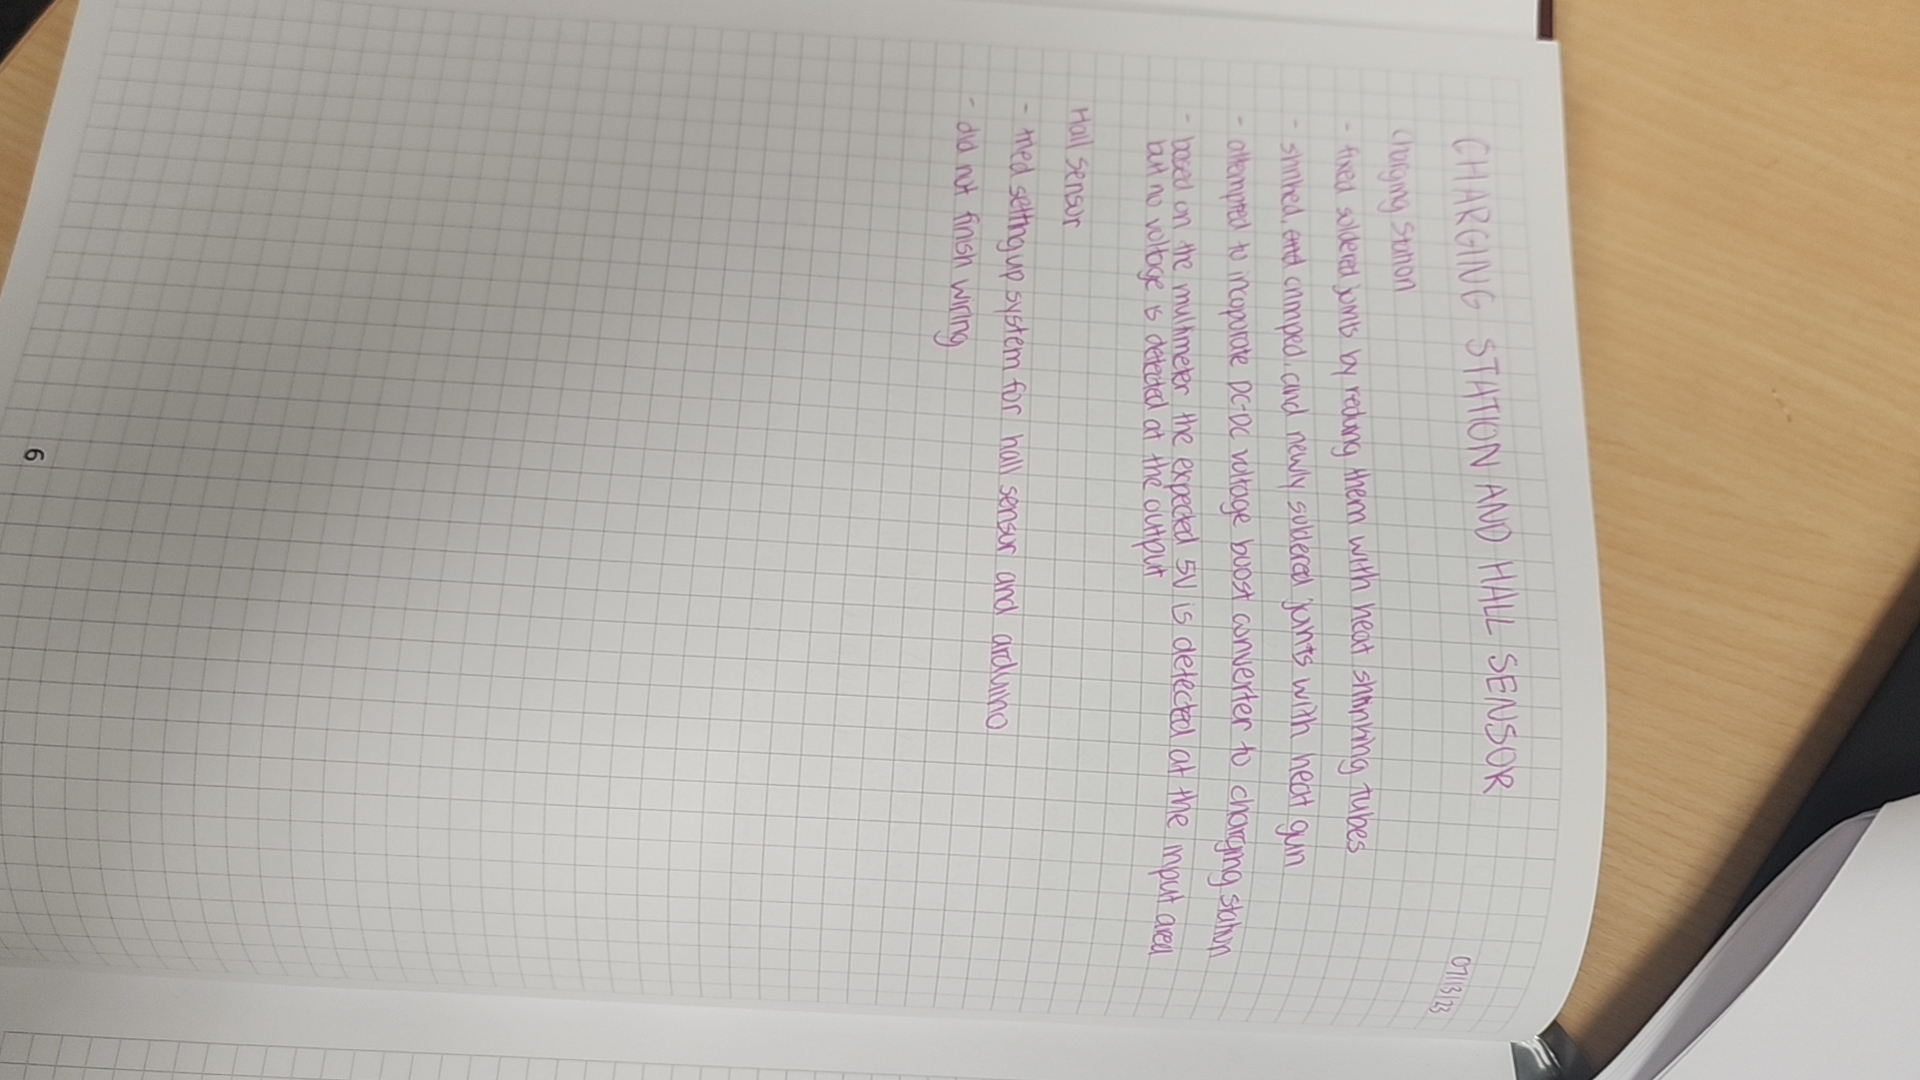 07/13/23
CHARGING STATION AND HALL SENSOR
Charging Station
- fixed soldered joints by redoing them with heat shrinking tubes
- shrinked and crimped, and newly soldered joints with heat gun
- attempted to incoporate DC-DC voltage boost converter to charging station
- based on the multimeter the expected 5V is detected at the input area
but no voltage is detected at the output
Hall sensor
- tried setting up system for hall sensor and arduino
- did not finish wiring
6